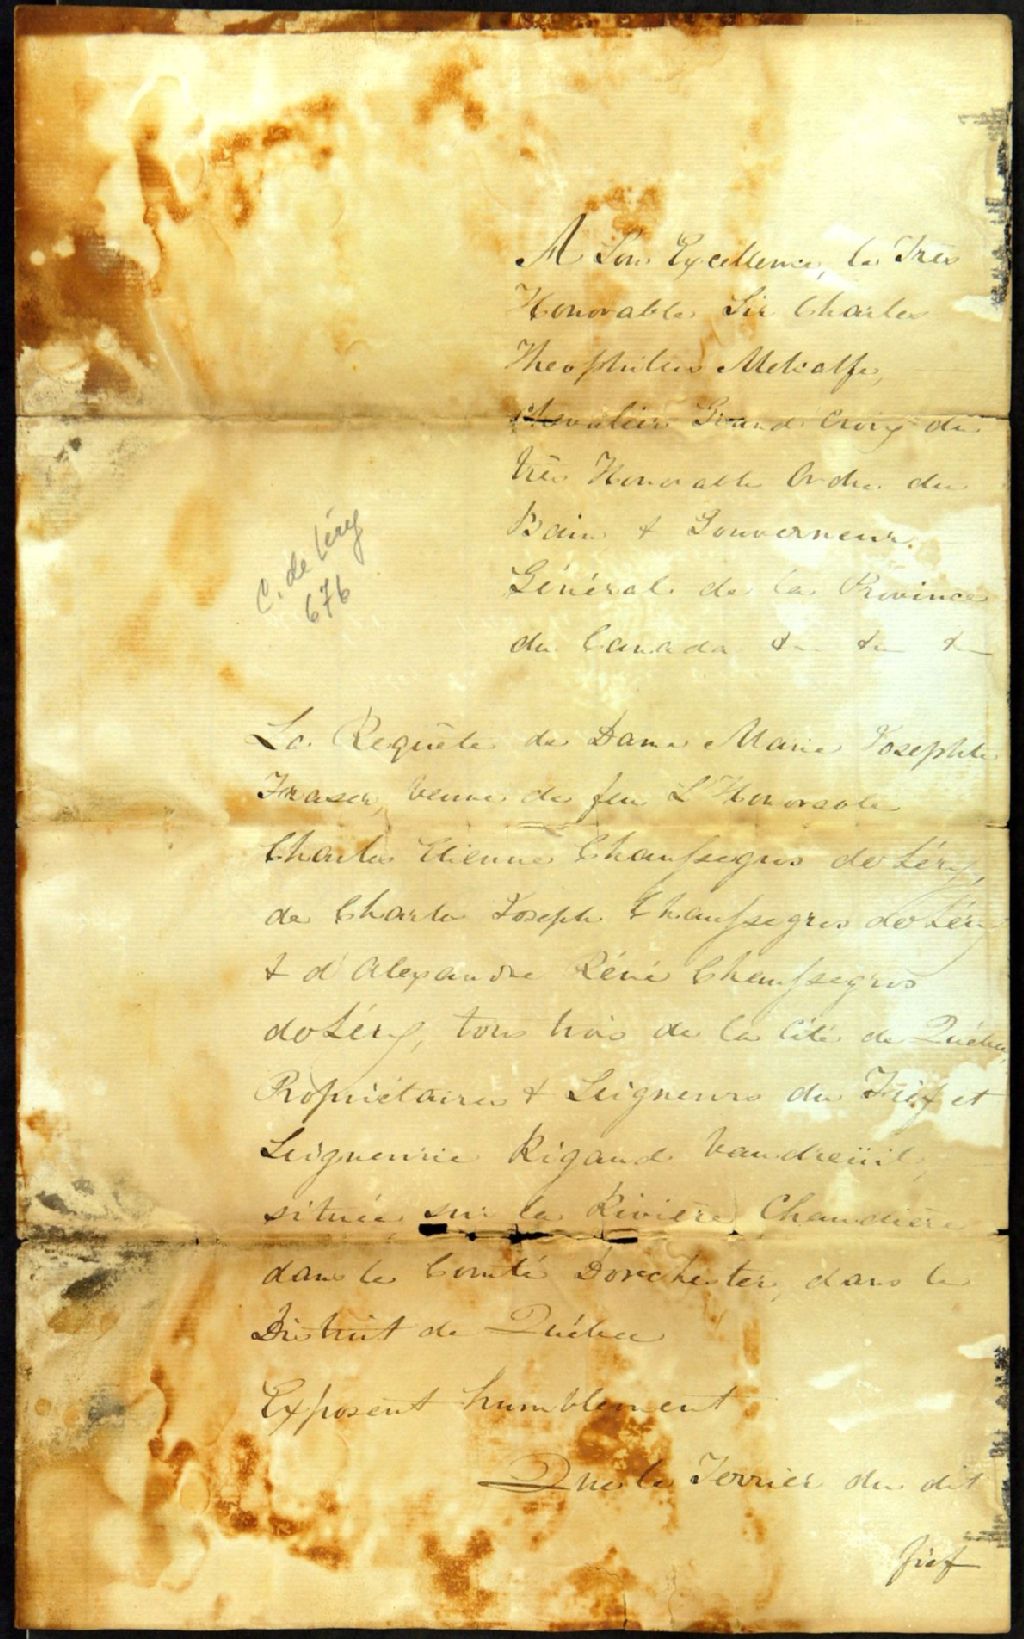 A Son Excellence, le Très
Honorable Sir Charles
Theophilus Metcalfe,
Chevalier Grand Croix du
très Honorable Ordre du
Bain, & Gouverneur
Général de la Province
du Canada &c &c &c
C. de Léry
676
La Requête de Dame Marie Josephte
Fraser, Veuve de feu L'Honorable
Charles Etienne Chaussegros de Léry,
de Charles Joseph Chaussegros de Léry
& d'Alexandre Réné Chaussegros
de Léry, tous trois de la Cité de Québec,
Propriétaires & Seigneurs du Fief et
Seigneurie Rigaud Vaudreüil,
située sur la Rivière Chaudière
dans le Comté Dorchester, dans le
District de Québec
Exposent humblement
Que le Terrier du dit
fief